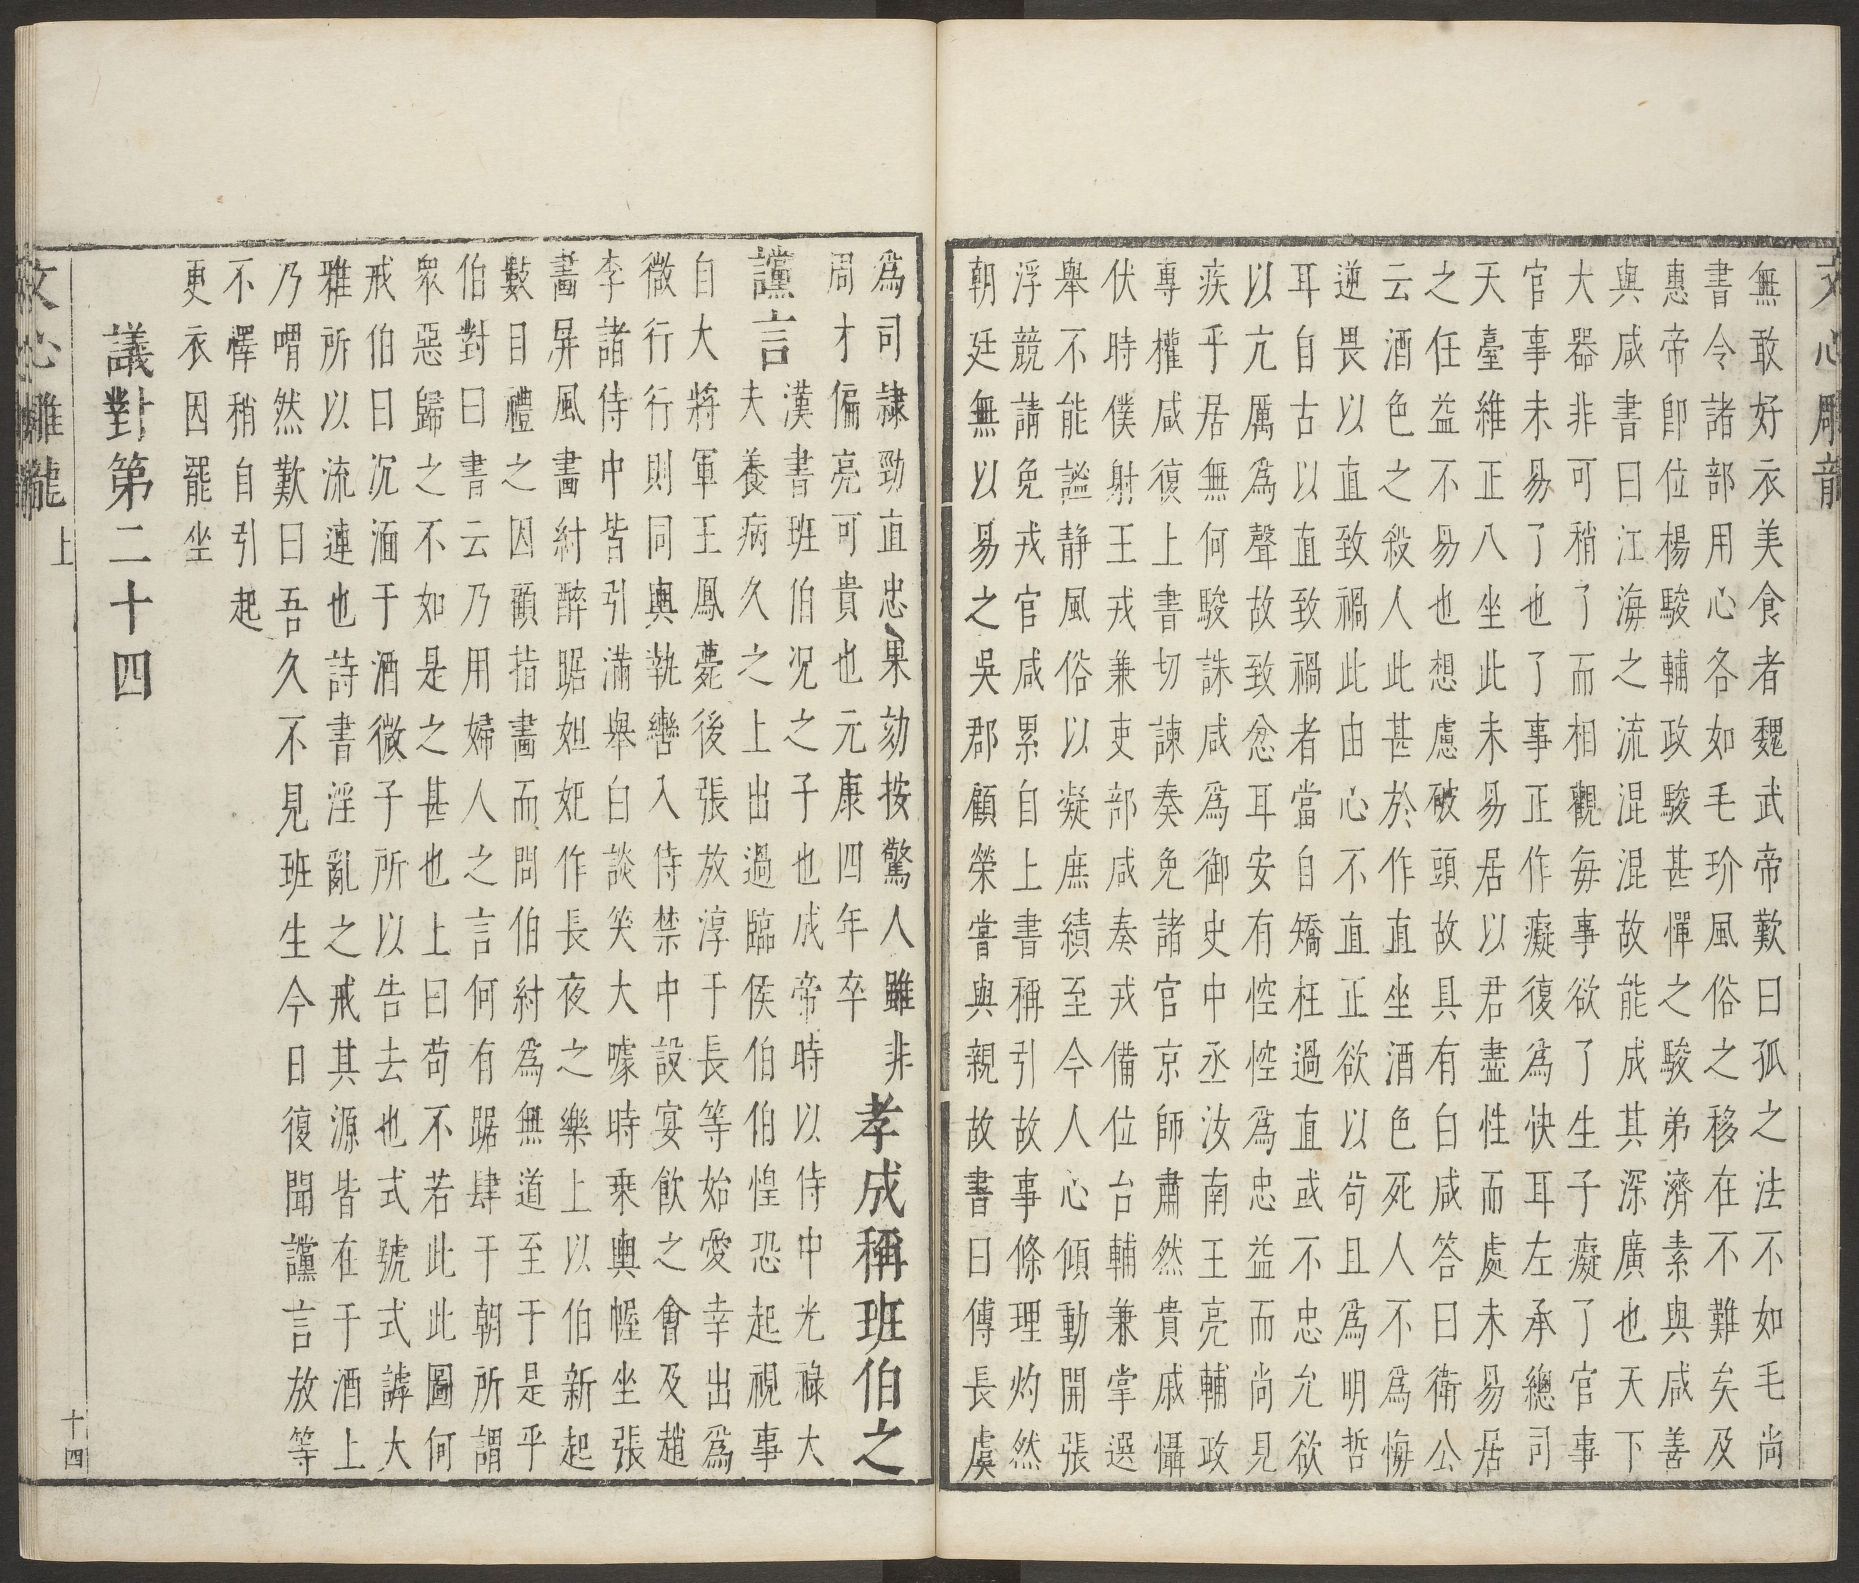 文心雕龍
無敢好衣美食者魏武帝歎曰孤之法不如毛尚
書令諸部用心各如毛玠風俗之移在不難矣及
惠帝即位楊駿輔政駿甚憚之駿弟濟素與咸善
與咸書曰江海之流混混故能成其深廣也天下
大器非可稍了而相觀每事欲了生子癡了官事
官事未易了也了事正作癡復為快耳左丞總司
天臺維正八坐此未易居以君盡性而處未易居
之任益不易也想慮破頭故具有白咸答曰衛公
云酒色之殺人此甚於作直坐酒色死人不為悔
逆畏以直致禍此由心不直正欲以苟且為明哲
耳自古以直致禍者當自矯枉過直或不忠允欲
以亢厲為聲故致忿耳安有悾悾為忠益而尚見
疾乎居無何駿誅咸為御史中丞汝南王亮輔政
專權咸復上書切諫奏免諸官京師肅然貴戚懾
伏時僕射王戎兼吏部咸奏戎備位台輔兼掌選
舉不能謐静風俗以凝庶績至令人心傾動開張
浮競請免戎官咸累自上書稱引故事條理灼然
朝廷無以易之吳郡顧榮嘗與親故書曰傅長虞
為司隷勁直忠果劾按驚人雖非
周才偏亮可貴也元康四年卒
孝成稱班伯之
讜言
漢書班伯况之子也成帝時以侍中光祿大
夫養病久之上出過臨侯伯伯惶恐起視事
自大將軍王鳳薨後張放淳于長等始愛幸出為
微行行則同輿執轡入侍禁中設宴飲之會及趙
李諸侍中皆引滿舉白談笑大噱時乘輿幄坐張
畫屏風畫紂醉踞妲妃作長夜之樂上以伯新起
數目禮之因顧指畫而問伯紂為無道至于是乎
伯對曰書云乃用婦人之言何有踞肆于朝所謂
眾惡歸之不如是之甚也上曰苟不若此此圖何
戒伯曰沉湎于酒微子所以告去也式號式謼大
雅所以流連也詩書淫亂之戒其源皆在于酒上
乃喟然歎曰吾久不見班生今日復聞讜言放等
不懌稍自引起
更衣因罷坐
議對第二十四
文心雕龍 上 十四